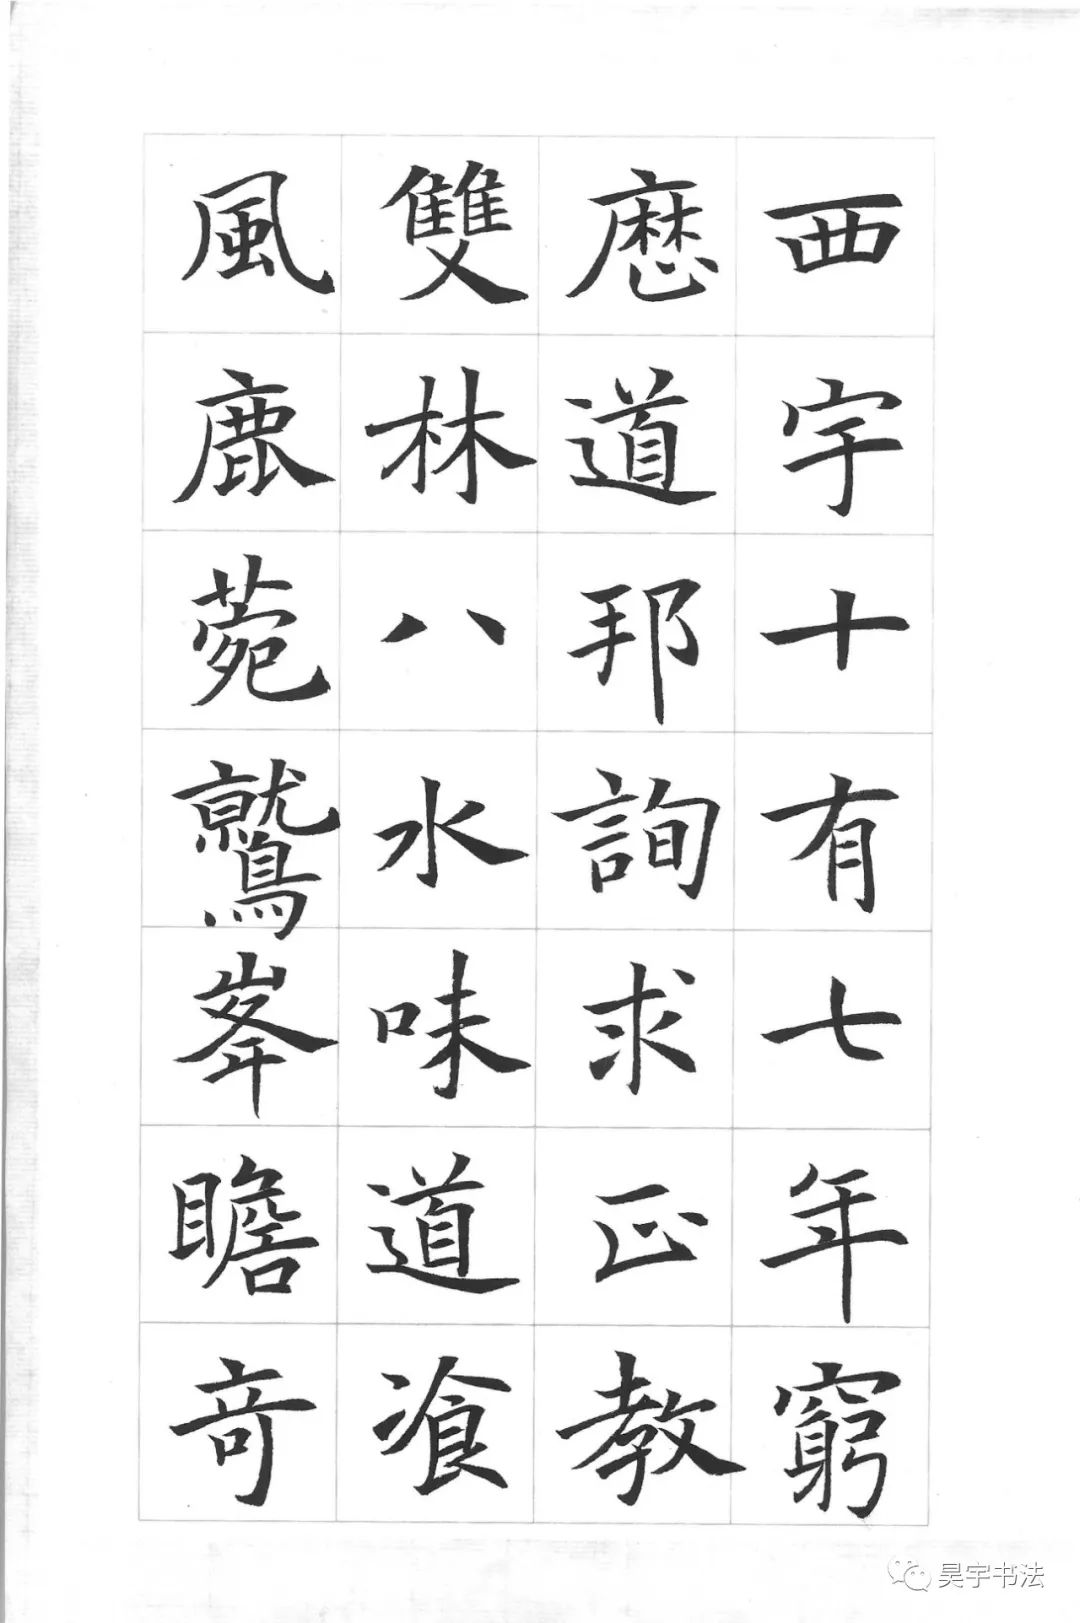 西宇十有七年窮
厯道邦詢求正教
雙林八水味道飡
風鹿菀鷲峯瞻奇
昊宇书法